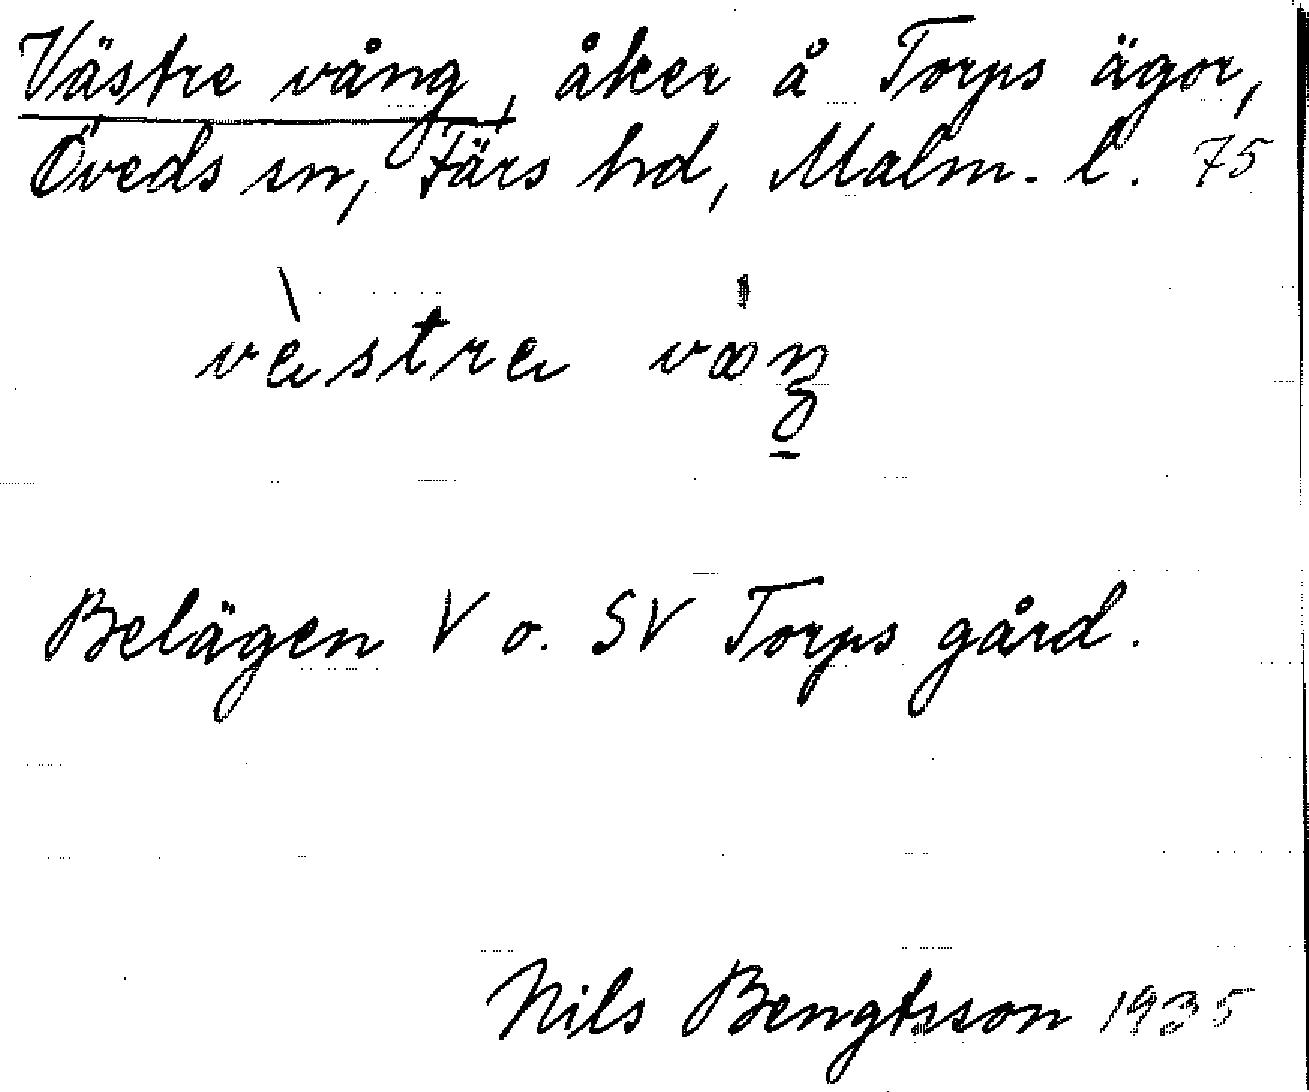 Västre vång, åker å Torps ägor,
Öveds sn, Färs hd, Malm. l. 75
Belägen V o. SV Torps gård.
Nils Bengtsson 1935